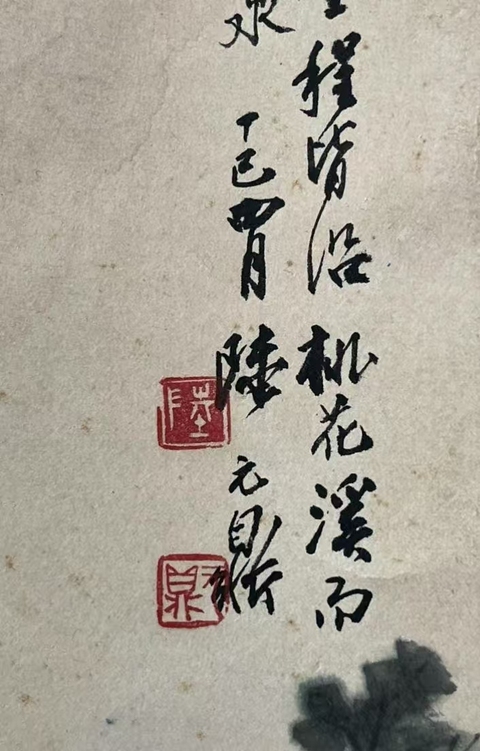 程皆沿桃花溪而
丁巳四月陸元鼎
陸
鼎